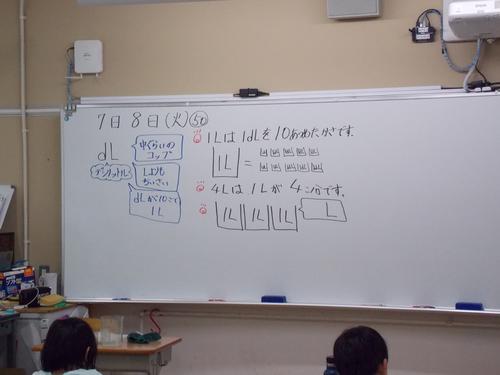 7日8日(火)50
dL
デシリットル
中くらいの
コップ
Lより
ちいさい
dLが10こで
1L
1Lは1dLを10あつめたかさです。
1L
=
4Lは1Lが4こ分です。
1L 1L 1L
L
EPSON